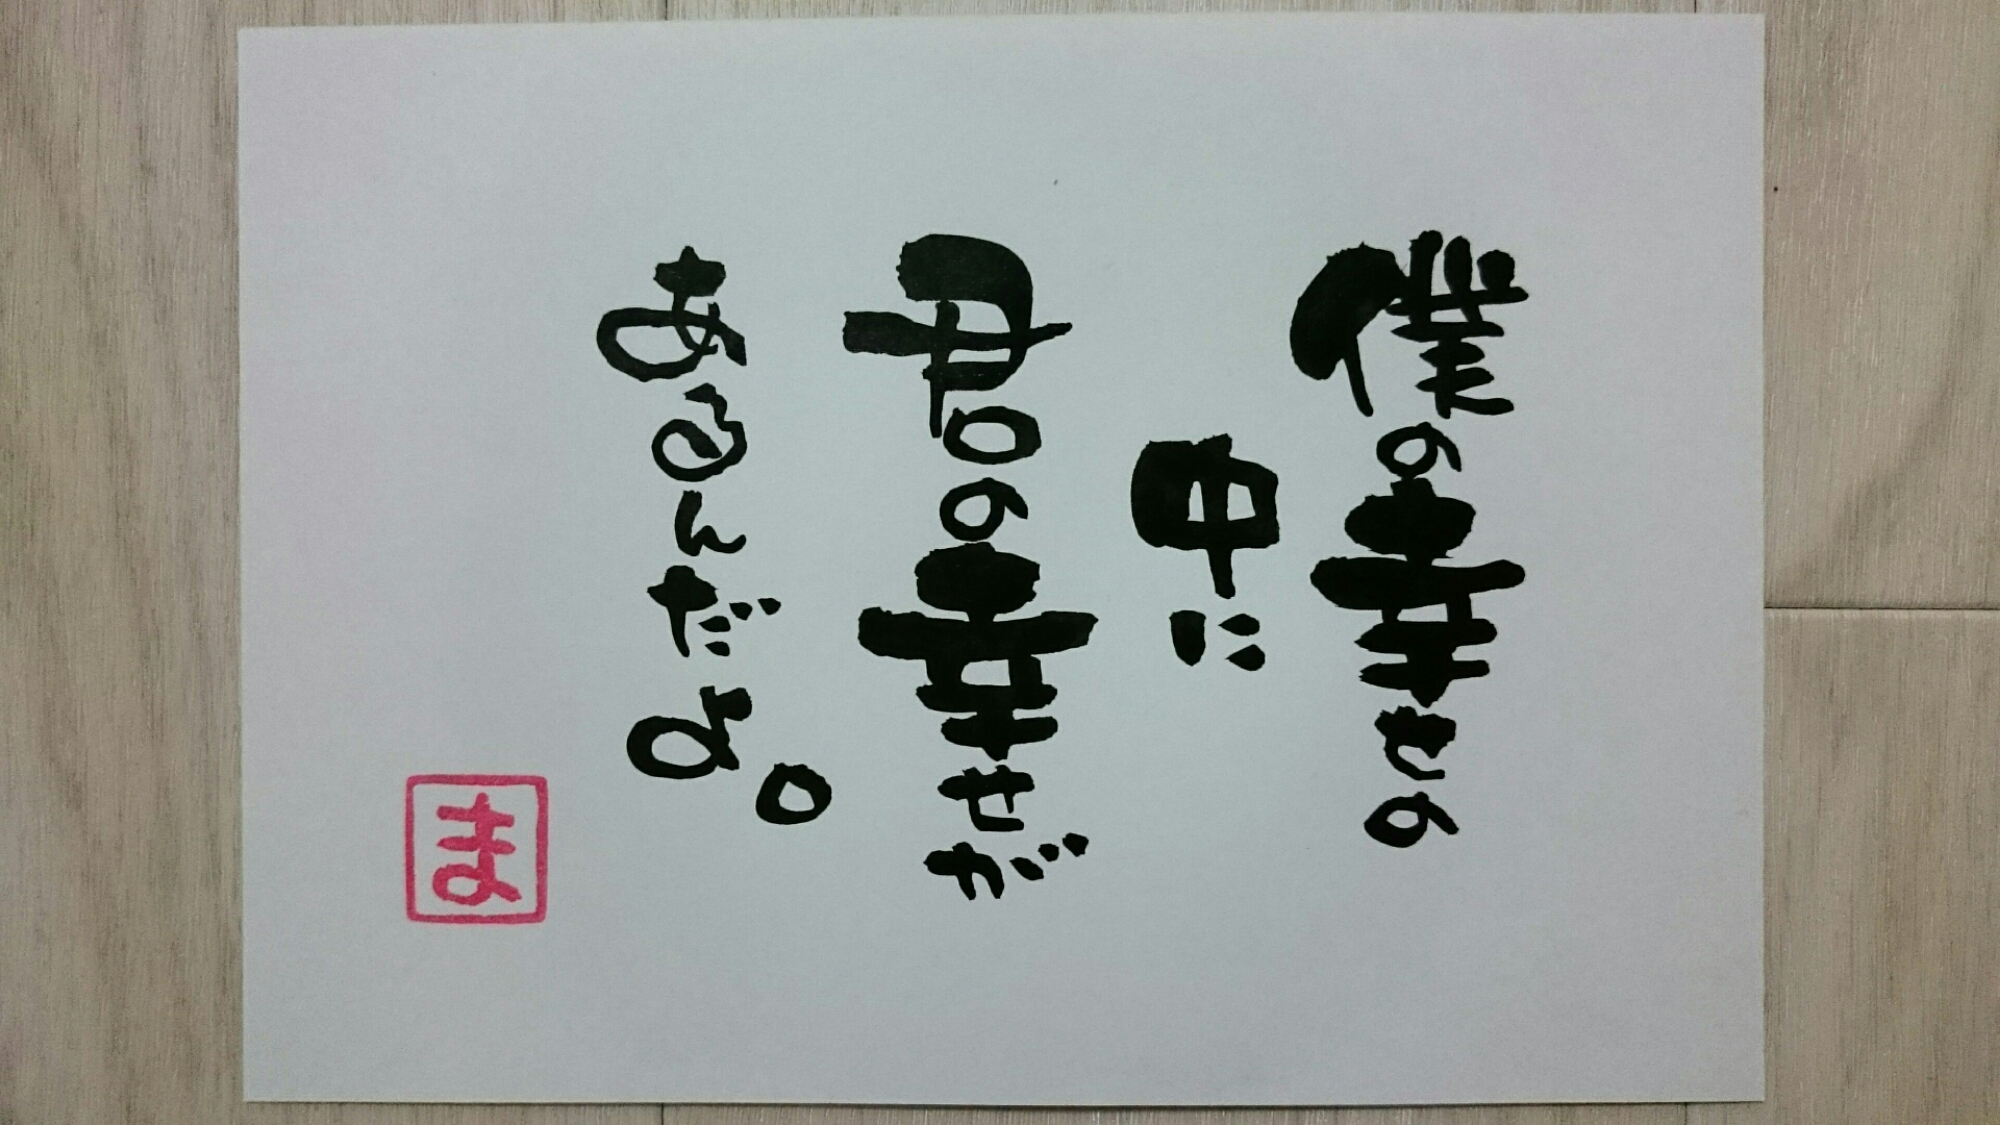 僕の幸せの
中に
君の幸せが
あるんだよ。
ま